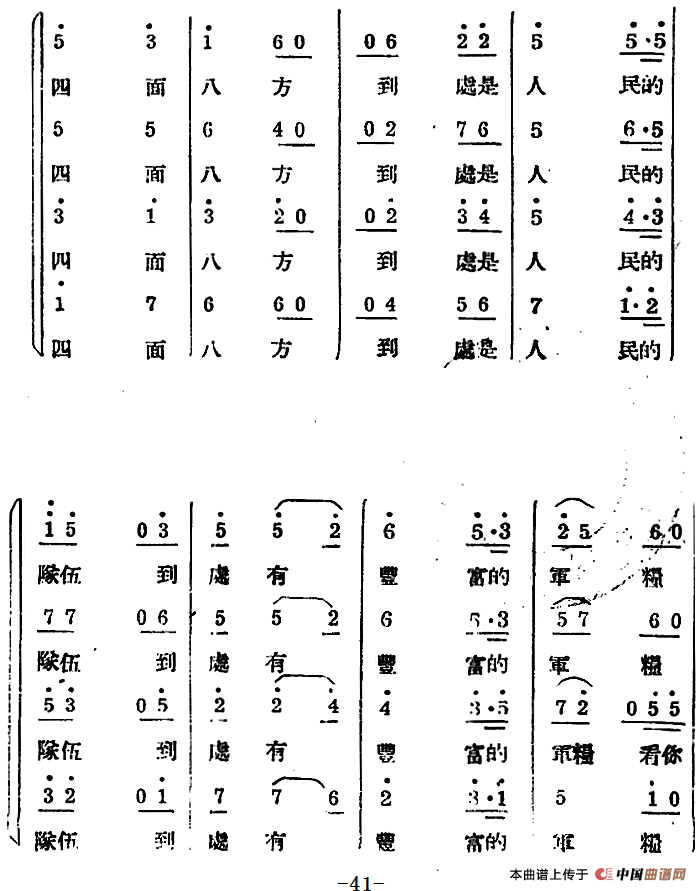 5̇ 3̇ | 1̇ 6 0 | 0 6 2̇ 2̇ | 5̇ 5̇·5̇
四 面 八 方 到 處是 人 民的
5 5 | 6 4 0 | 0 2 7 6 | 5 6·5
四 面 八 方 到 處是 人 民的
3̇ 1̇ | 3̇ 2̇ 0 | 0 2̇ 3̇ 4̇ | 5̇ 4̇·3̇
四 面 八 方 到 處是 人 民的
1̇ 7 | 6 6 0 | 0 4 5 6 | 7 1̇·2̇
四 面 八 方 到 處是 人 民的
1̇ 5̇ 0 3̇ | 5̇ 5̇ 2̇ | 6̇ 5̇·3̇ | 2̇ 5 6 0
隊伍 到 處 有 豐 富的 軍 糧
7 7 0 6 | 5 5 2 | 6 5·3 | 5 7 6 0
隊伍 到 處 有 豐 富的 軍 糧
5̇ 3̇ 0 5̇ | 2̇ 2̇ 4̇ | 4̇ 3̇·5̇ | 7 2̇ 0 5̇ 5̇
隊伍 到 處 有 豐 富的 軍糧 看你
3̇ 2̇ 0 1̇ | 7 7 6 | 2̇ 3̇·1̇ | 5 1̇ 0
隊伍 到 處 有 豐 富的 軍 糧
-41-
本曲谱上传于 中国曲谱网